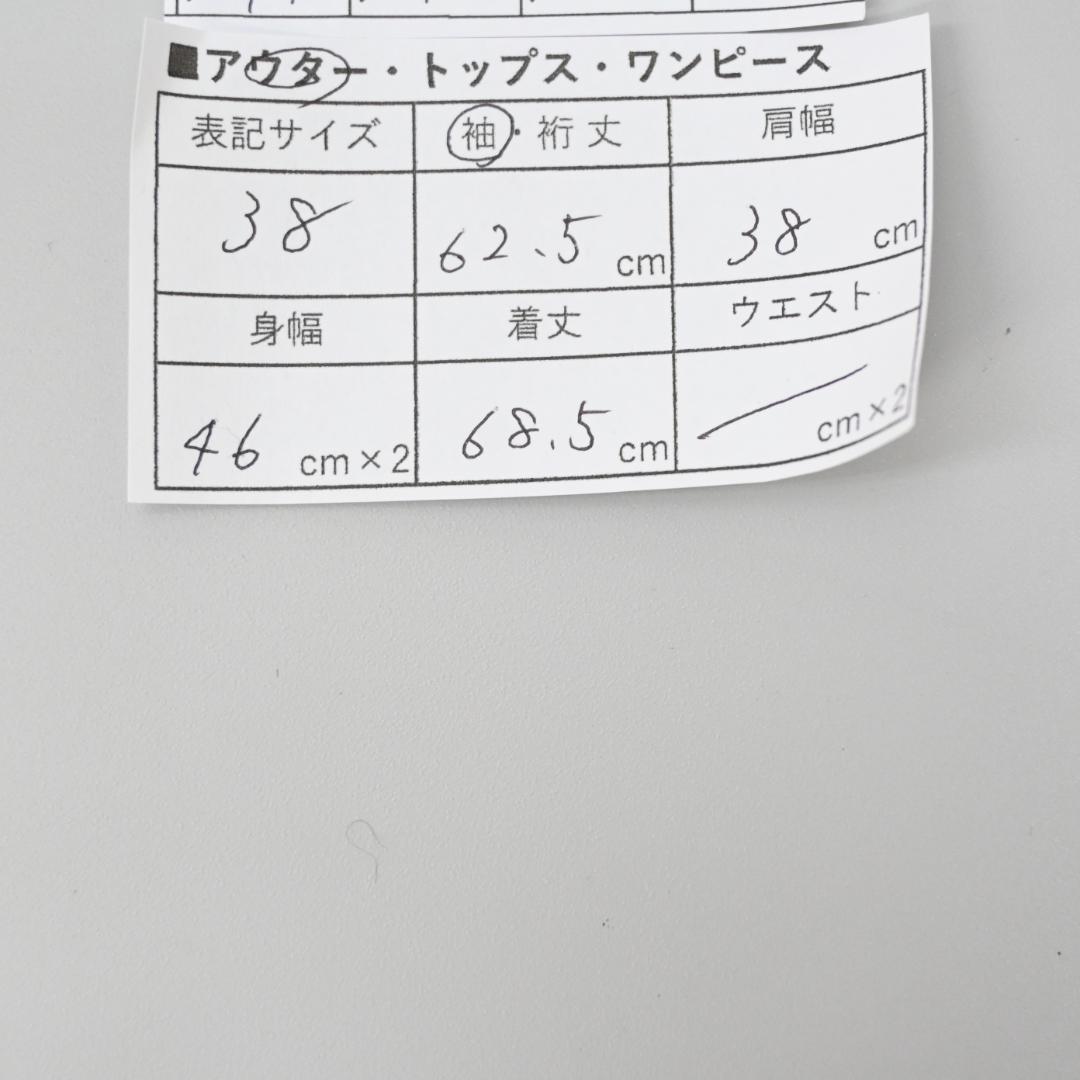 ■アウター・トップス・ワンピース
表記サイズ 袖・裄丈 肩幅
38 62.5 cm 38 cm
身幅 着丈 ウエスト
46 cm×2 68.5 cm cm×2